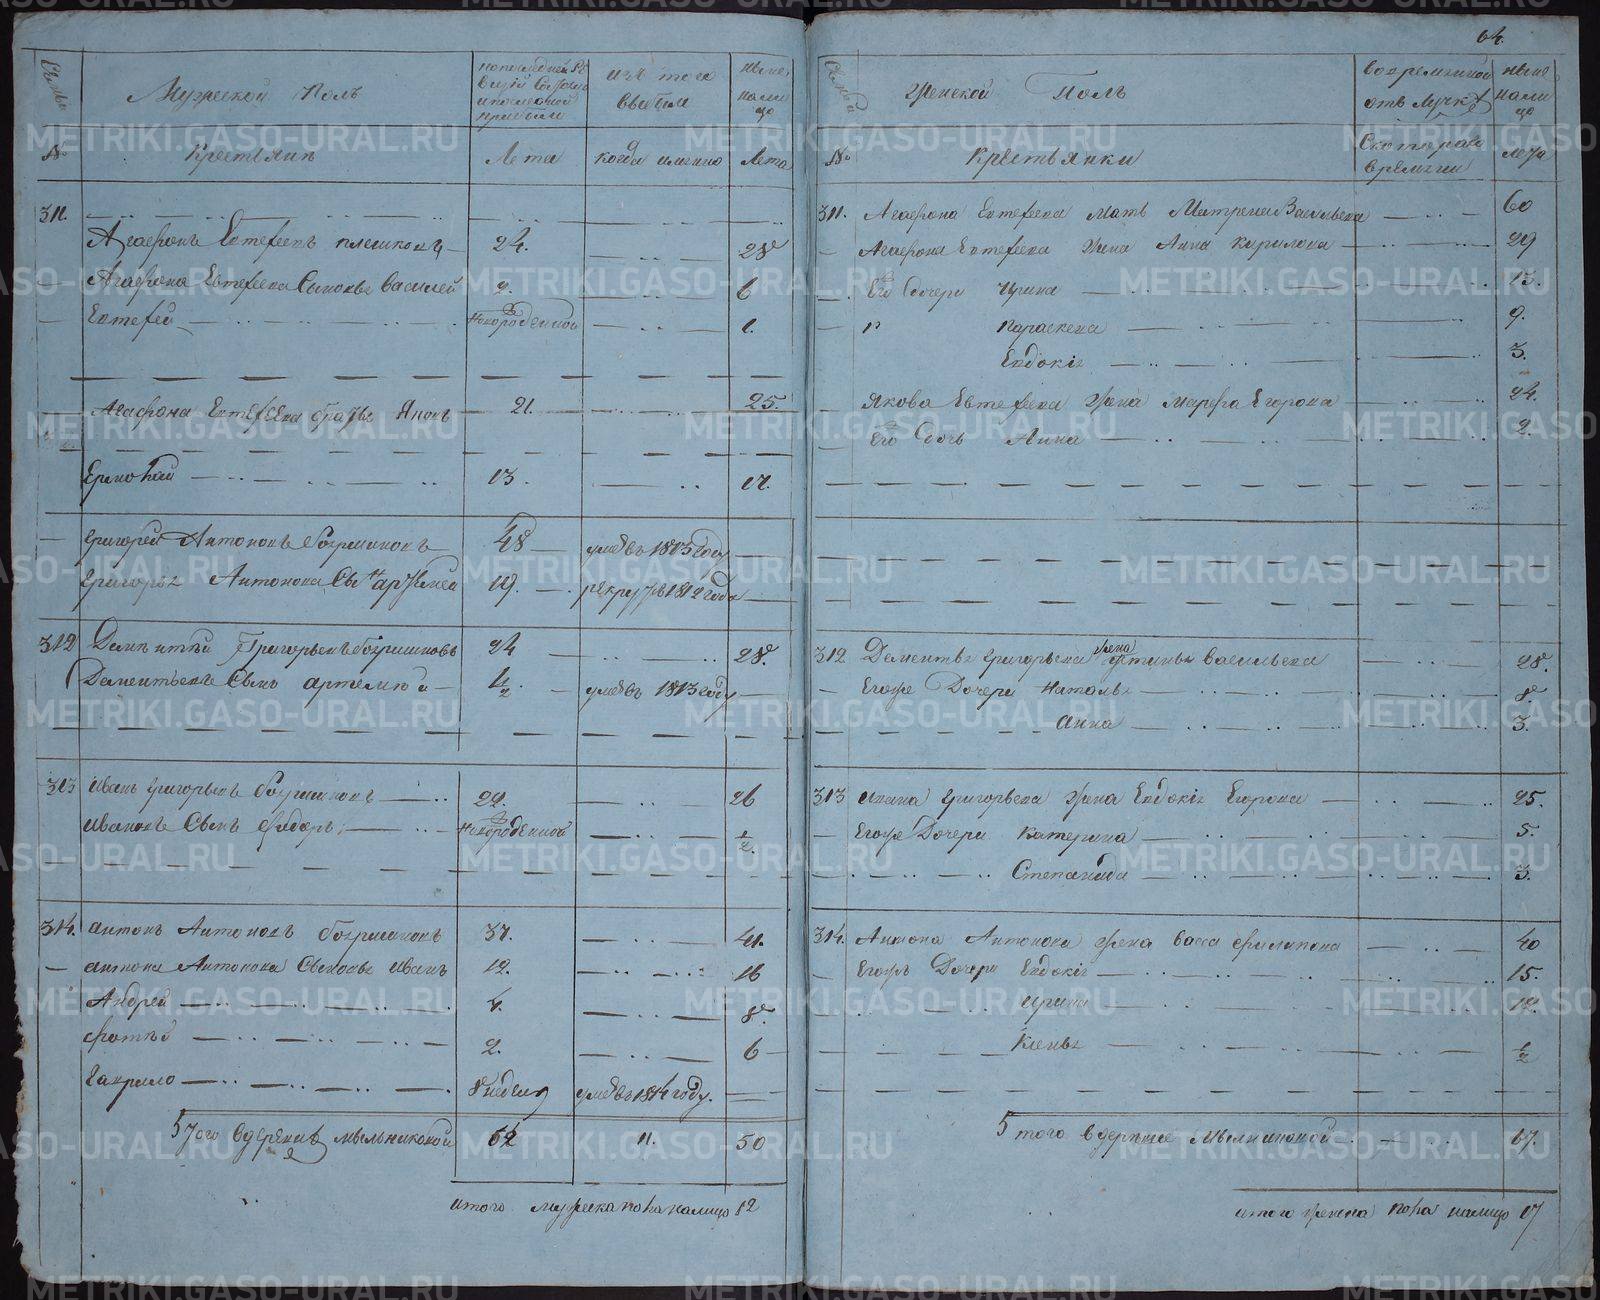 64.
Семьи
Мужеской Полъ
по последней ре
визіи состояло
и после оной
прибыли
изъ того
выбыли
ныне
нали
цо
№
Крестьянъ
Лета
когда именно
Лета
311.
Агафонъ Евтефеевъ плешковъ
24.
28
Агафона Евтефеева Сыновья Василей
2.
6
Евтефей
Новорожденной
1.
Агафона Евтефеева братья Яковъ
21.
25.
Ермолай
13.
17.
Григорей Антоновъ богришковъ
48
умеръ 1813 году
Григорья Антонова Сынъ
19.
рекруты 1812 года
312
Дементей Григорьевъ богришковъ
24
28.
Дементьевъ Сынъ артемей
1/2
умеръ 1813 году
313
Иванъ Григорьевъ богришковъ
22.
26
Ивановъ Сынъ Фидоръ
Новорожденной
1/2.
314.
антонъ Антоновъ богришковъ
37.
41.
антона Антонова Сыновья Иванъ
12.
16
Андрей
4.
8.
Фотей
2.
6
Гаврило
8 недель
умеръ 1814 году.
Итого в деревне мыльниковой
62
11.
50
итого мужеска пола налицо 12
Семьи
Женской Полъ
во временной
отлучке
ныне
нали
цо
№
Крестьянки
С котораго
времени
лета
311.
Агафона Евтефеева Мать Матрена Васильева
60
Агафона Евтефеева Жена Анна Кирилова
29
Его Дочери Ирина
13.
Параскева
9.
Евдокія
3.
Якова Евтефеева Жена Марфа Егорова
24.
Его Дочь Анна
2.
312
Дементья Григорьева жена Устинья васильева
28.
Егоже Дочери Наталья
8.
Анна
3.
313
Ивана Григорьева Жена Евдокія Егорова
25.
Егоже Дочери Катерина
5.
Степанида
3.
314.
Антона Антонова жена васса филипова
40
Егожъ Дочери Евдокія
15
Ирина
12.
Ксенья
1/2
Итого в деревне Мыльниковой
67.
итого женска пола налицо 17
METRIKI.GASO-URAL.RU